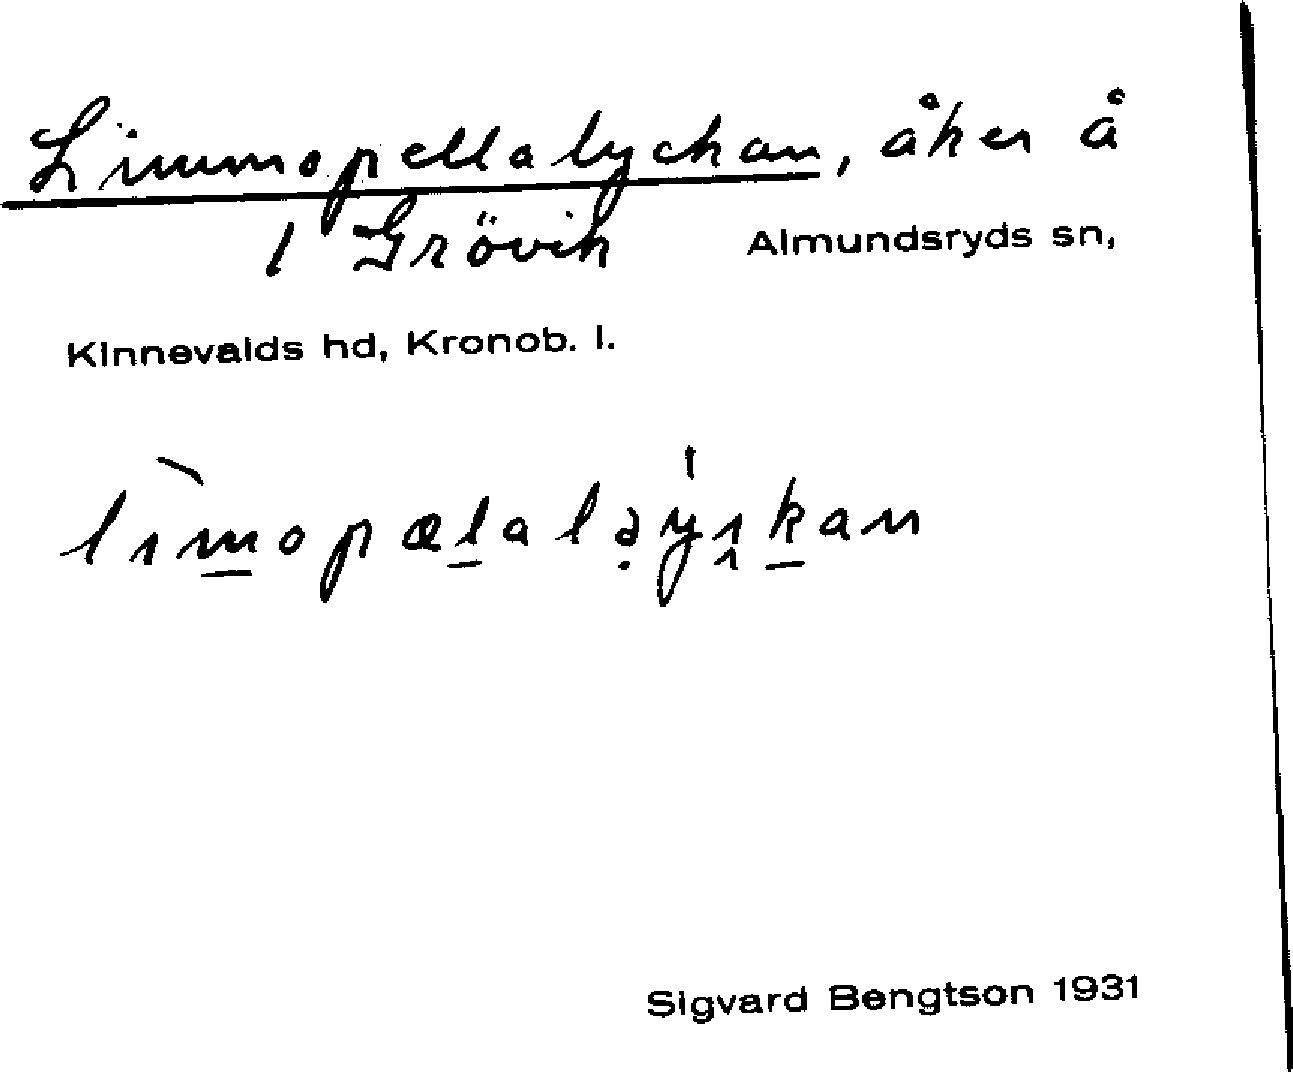 Limmopellalyckan, åker å
1 Grövik Almundsryds sn,
Kinnevalds hd, Kronob. l.
lımopælaləyıkan
Sigvard Bengtson 1931